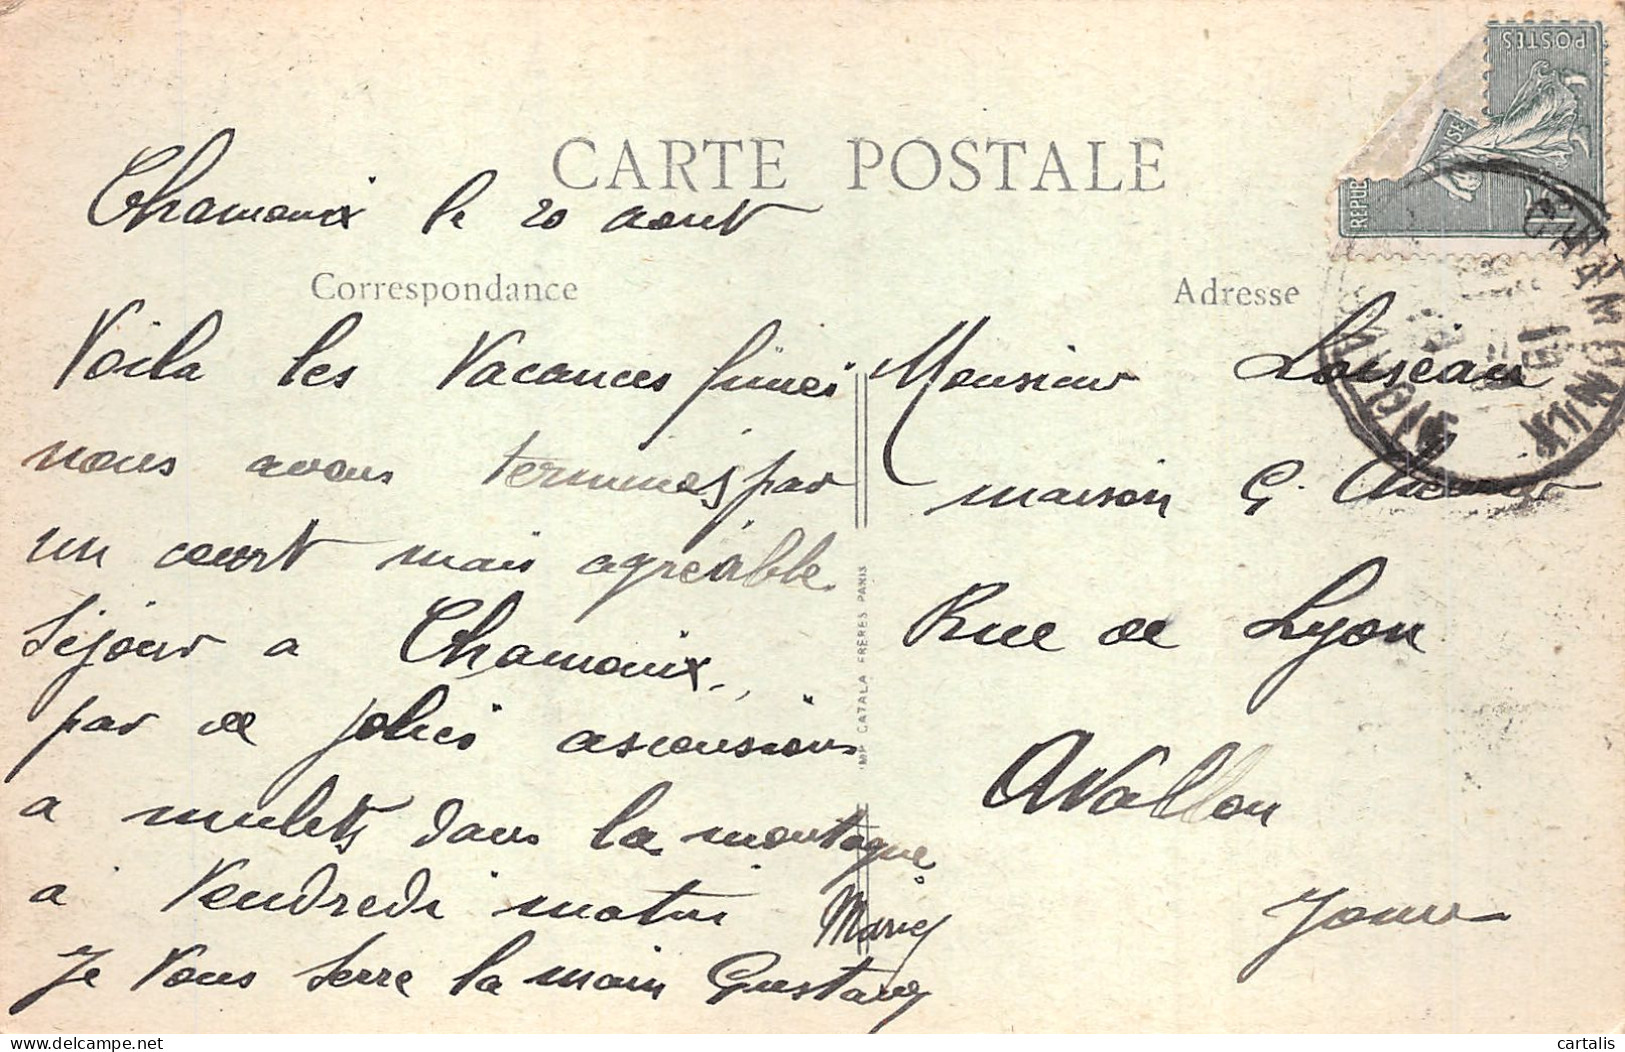 CARTE POSTALE
POSTES
REPUB
ISE
CHAMONIX
Chamonix le 20 aout
Correspondance
Adresse
Voila les Vacances finies
nous avons terminés par
un court mais agréable
séjour a Chamonix..
par de jolies ascensions
a mulets dans la montagne
a Vendredi matin
Marie
Je Vous serre la main Gustave
Monsieur Loiseau
maison G.
Rue de Lyon
Avallon
Yonne
IMP CATALA FRERES PARIS
cartalis